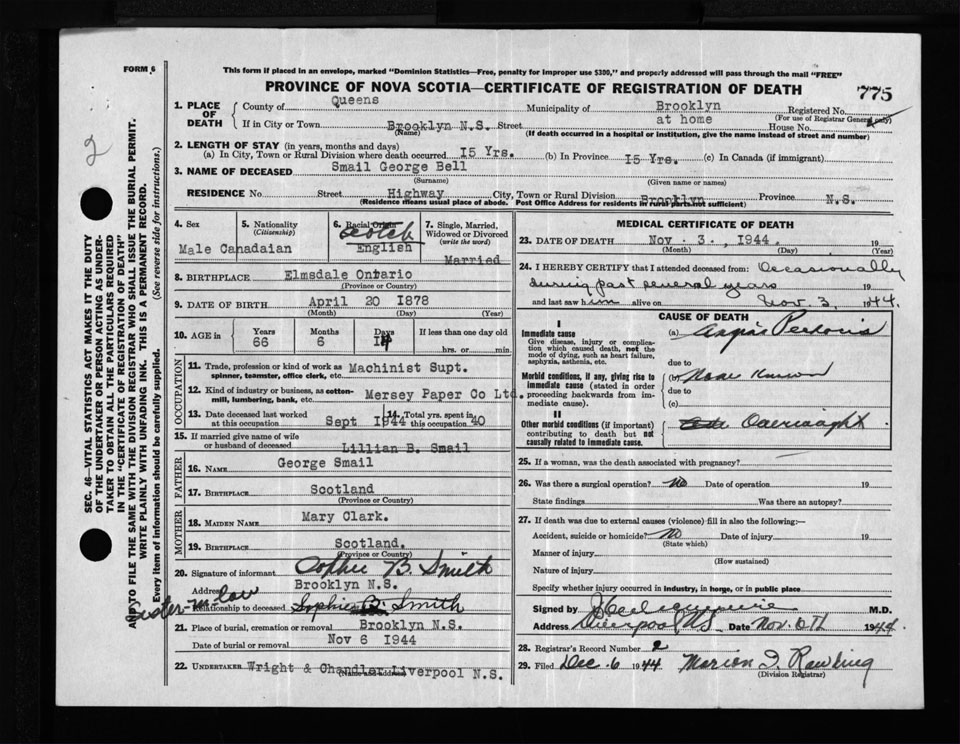 FORM 6
This form if placed in an envelope, marked "Dominion Statistics—Free, penalty for improper use $300," and properly addressed will pass through the mail "FREE"
PROVINCE OF NOVA SCOTIA—CERTIFICATE OF REGISTRATION OF DEATH
775
2
1. PLACE OF DEATH
County of Queens Municipality of Brooklyn Registered No.
(For use of Registrar General only)
If in City or Town Brooklyn N.S. Street at home House No.
(Name) (If death occurred in a hospital or institution, give the name instead of street and number)
2. LENGTH OF STAY (in years, months and days)
(a) In City, Town or Rural Division where death occurred 15 Yrs. (b) In Province 15 Yrs. (c) In Canada (if immigrant)
3. NAME OF DECEASED Smail George Bell
(Surname) (Given name or names)
RESIDENCE No Street Highway City, Town or Rural Division Brooklyn Province N.S.
(Residence means usual place of abode. Post Office Address for residents in rural parts not sufficient)
4. Sex Male
5. Nationality (Citizenship) Canadaian
6. Racial Origin Scotch English
7. Single, Married, Widowed or Divorced (write the word) Married
8. BIRTHPLACE Elmsdale Ontario
(Province or Country)
9. DATE OF BIRTH April 20 1878
(Month) (Day) (Year)
10. AGE in Years 66 Months 6 Days 14 If less than one day old hrs. or min.
OCCUPATION
11. Trade, profession or kind of work as spinner, teamster, office clerk, etc. Machinist Supt.
12. Kind of industry or business, as cotton-mill, lumbering, bank, etc. Mersey Paper Co Ltd.
13. Date deceased last worked at this occupation Sept 1944 14. Total yrs. spent in this occupation 40
15. If married give name of wife or husband of deceased Lillian B. Smail
FATHER
16. NAME George Smail
17. BIRTHPLACE Scotland
(Province or Country)
MOTHER
18. MAIDEN NAME Mary Clark.
19. BIRTHPLACE Scotland.
(Province or Country)
20. Signature of informant Sophie B. Smith
Address Brooklyn N.S.
Relationship to deceased Sophie B. Smith
sister-in-law
21. Place of burial, cremation or removal Brooklyn N.S.
Date of burial or removal Nov 6 1944
22. UNDERTAKER Wright & Chandler Liverpool N.S.
(Name and address)
MEDICAL CERTIFICATE OF DEATH
23. DATE OF DEATH Nov. 3, 1944. 19
(Month) (Day) (Year)
24. I HEREBY CERTIFY that I attended deceased from: Occasionally
during past several years 19
and last saw him alive on Nov. 3 1944.
CAUSE OF DEATH
I
Immediate cause (a) Angina Pectoris
Give disease, injury or complication which caused death, not the mode of dying, such as heart failure, asphyxia, asthenia, etc.
due to
Morbid conditions, if any, giving rise to immediate cause (stated in order proceeding backwards from immediate cause). (b) None Known
due to
(c)
II
Other morbid conditions (if important) contributing to death but not causally related to immediate cause. Overweight
25. If a woman, was the death associated with pregnancy?
26. Was there a surgical operation? No Date of operation 19
State findings Was there an autopsy?
27. If death was due to external causes (violence) fill in also the following:—
Accident, suicide or homicide? No Date of injury 19
(State which)
Manner of injury
(How sustained)
Nature of injury
Specify whether injury occurred in industry, in home, or in public place
Signed by M.D.
Address Liverpool NS Date Nov. 1944.
28. Registrar's Record Number 2
29. Filed Dec. 6 1944 Marion I. Rawding
(Division Registrar)
SEC. 46—VITAL STATISTICS ACT MAKES IT THE DUTY
OF THE UNDERTAKER OR PERSON ACTING AS UNDER-
TAKER TO OBTAIN ALL THE PARTICULARS REQUIRED
IN THE "CERTIFICATE OF REGISTRATION OF DEATH"
AND TO FILE THE SAME WITH THE DIVISION REGISTRAR WHO SHALL ISSUE THE BURIAL PERMIT.
WRITE PLAINLY WITH UNFADING INK. THIS IS A PERMANENT RECORD.
Every item of information should be carefully supplied. (See reverse side for instructions.)